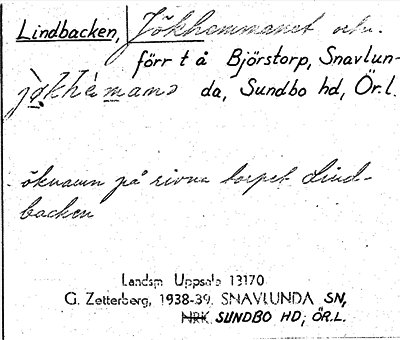 Lindbacken, Jökhemmanet
förr t å Björstorp, Snavlun-
da, Sundbo hd, Ör.l.
öknamn på rivna torpet Lind-
backen
Landsm Uppsala 13170
G. Zetterberg, 1938-39. SNAVLUNDA SN,
NRK SUNDBO HD, ÖR.L.